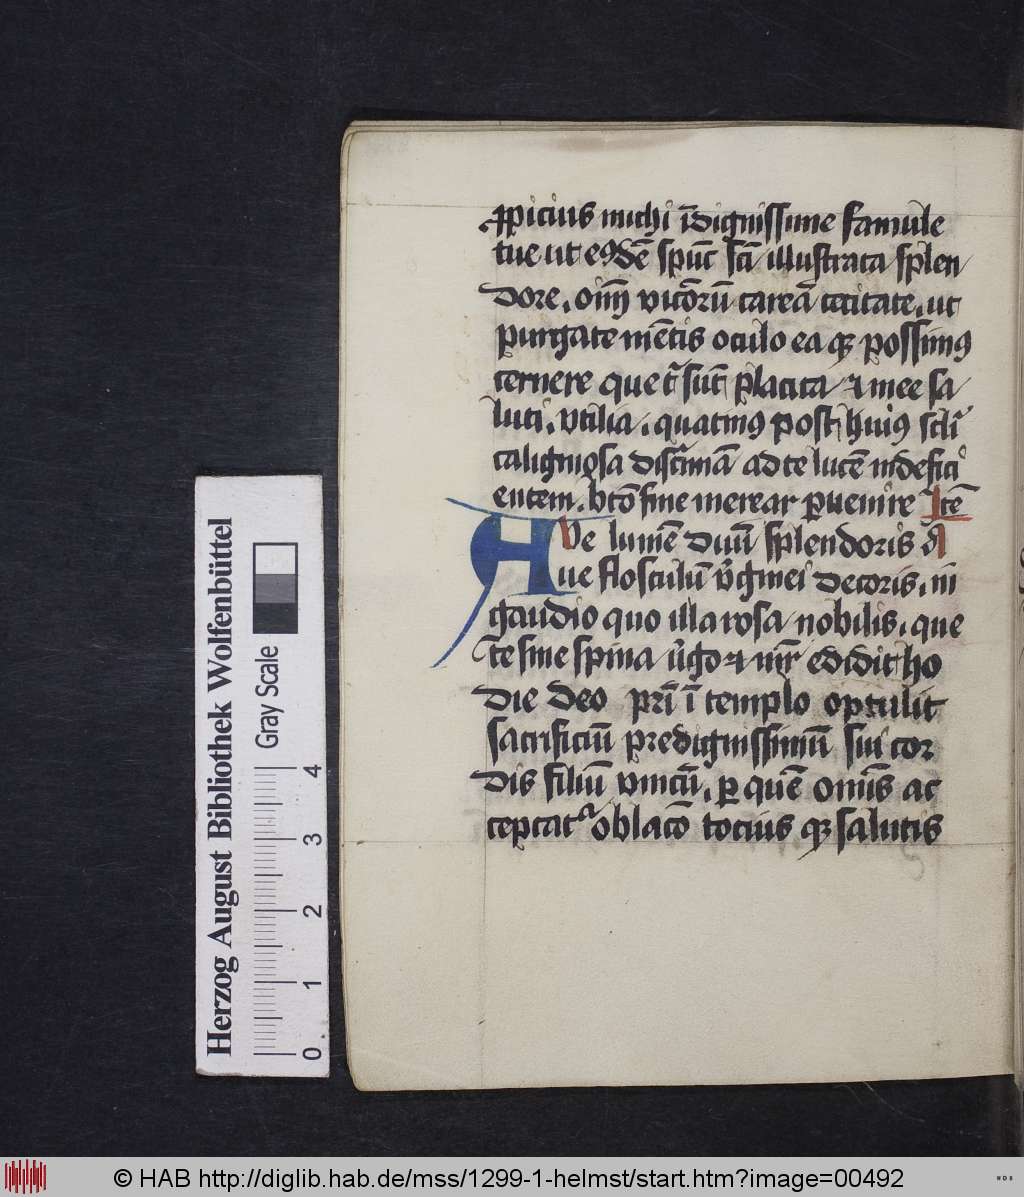 ꝓpicius michi īdignissime famule
tue ut eꝯdē spūc scī illustrata splen
dore, oīm vicōrū careā cecitate, ut
purgate mētis oculo ea qꝫ possimꝯ
cernere que t̄ sūt placita ⁊ mee sa
luti, vtilia, quatinꝯ post huiꝯ sclī
caliginosa discīmā ad te lucē indefici
entem, btō fine merear ꝑuenire Itē
AVe lumē diuī splendoris
aue flosculū v̓ginei decoris, in
gaudio quo illa rosa nobilis, que
te sine spina v̓go ⁊ mr̄ edidit ho
die deo pr̄i ī templo optulit
sacrificiū predignissimū sui cor
dis filiū vnicū, ꝑ quē omīs ac
ceptat᷑ oblacō tocius qꝫ salutis
Herzog August Bibliothek Wolfenbüttel
Gray Scale
0 1 2 3 4
© HAB http://diglib.hab.de/mss/1299-1-helmst/start.htm?image=00492